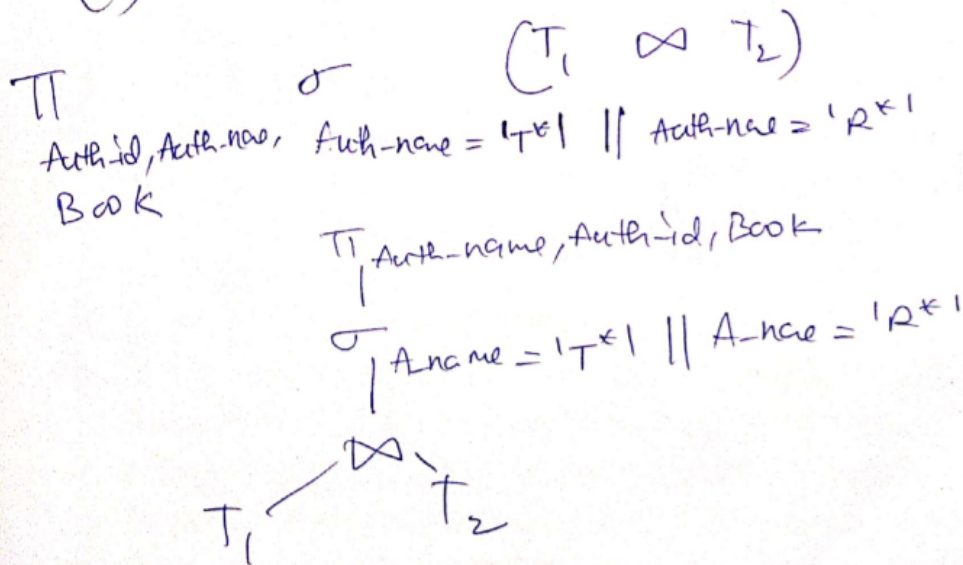 π σ (T₁ ⋈ T₂)
Auth-id, Auth-nae, Auth-name = 'T*' || Auth-nae = 'R*'
Book
π Auth-name, Auth-id, Book
σ A-name = 'T*' || A-nae = 'R*'
⋈
T₁ T₂